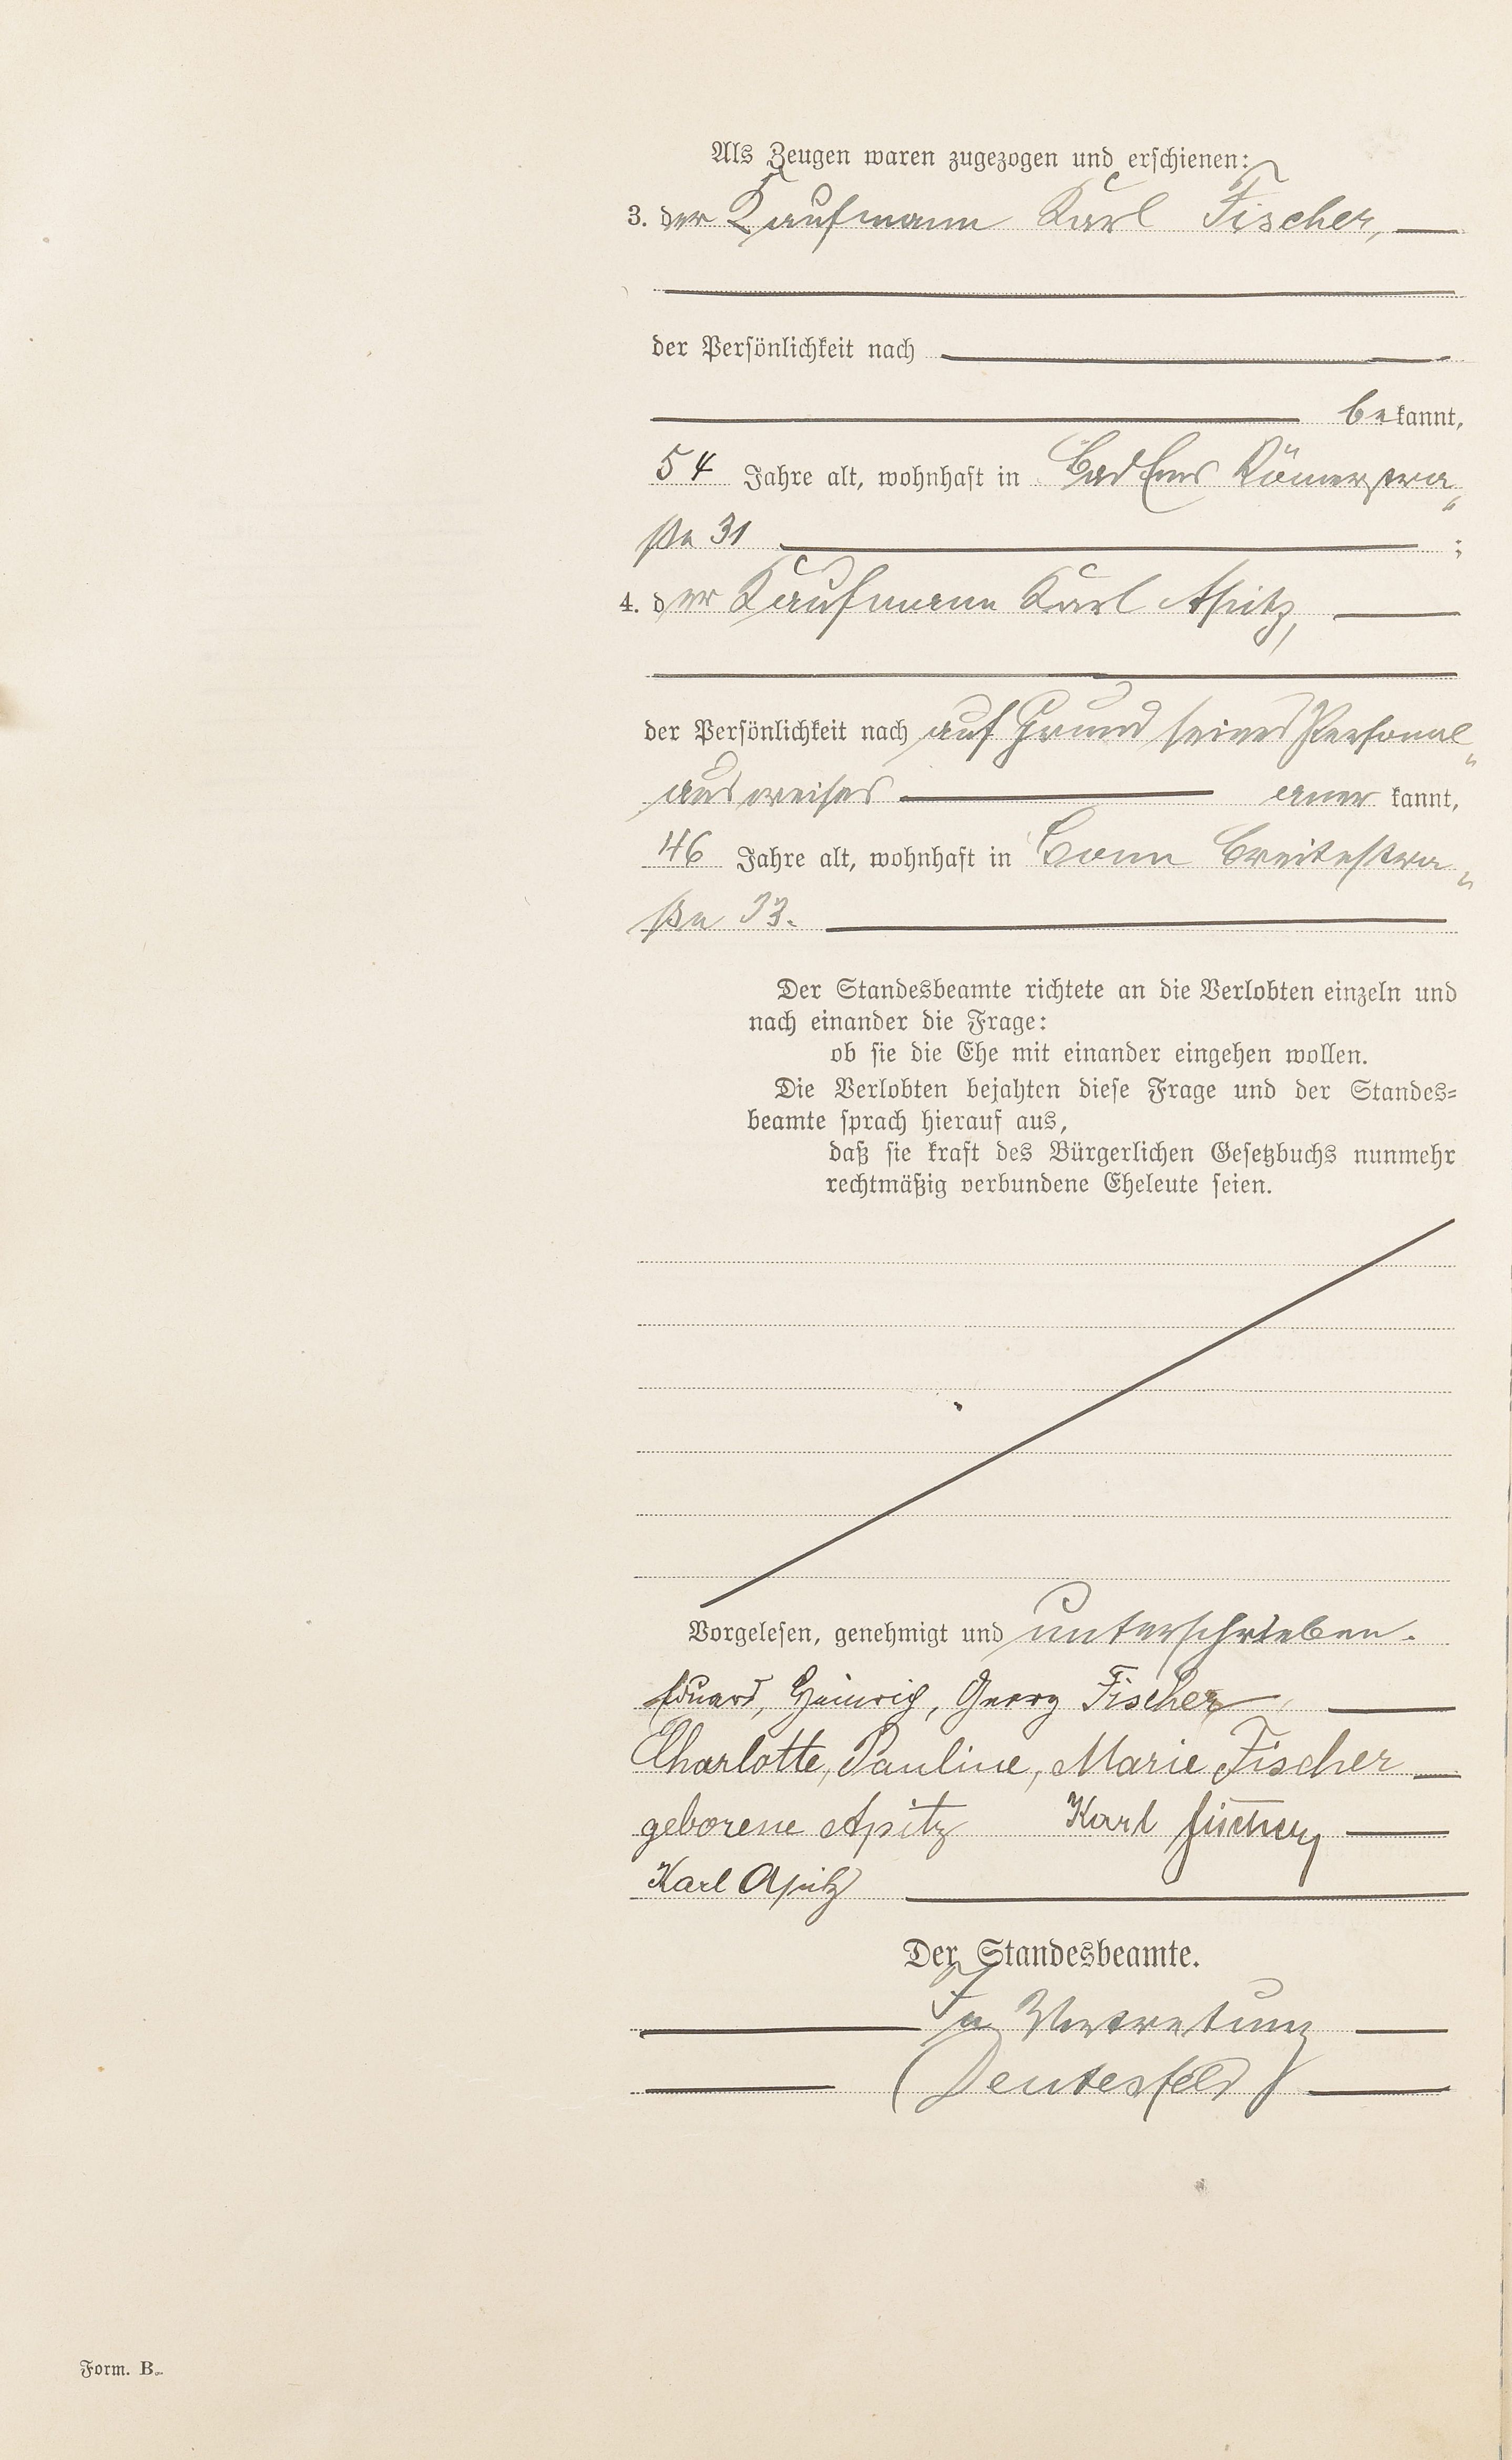 Als Zeugen waren zugezogen und erschienen:
3. der Kaufmann Karl Fischer,
der Persönlichkeit nach
bekannt,
54 Jahre alt, wohnhaft in Bad Ems Römerstra„
ße 31 ;
4. der Kaufmann Karl Apitz,
der Persönlichkeit nach auf Grund seines Personal„
ausweises anerkannt,
46 Jahre alt, wohnhaft in Bonn Breitestra„
ße 33.
Der Standesbeamte richtete an die Verlobten einzeln und
nach einander die Frage:
ob sie die Ehe mit einander eingehen wollen.
Die Verlobten bejahten diese Frage und der Standes=
beamte sprach hierauf aus,
daß sie kraft des Bürgerlichen Gesetzbuchs nunmehr
rechtmäßig verbundene Eheleute seien.
Vorgelesen, genehmigt und unterschrieben.
Eduard, Heinrich, Georg Fischer,
Charlotte, Pauline, Marie Fischer
geborene Apitz Karl Fischer
Karl Apitz
Der Standesbeamte.
In Vertretung
(Deutesfeld)
Form. B.